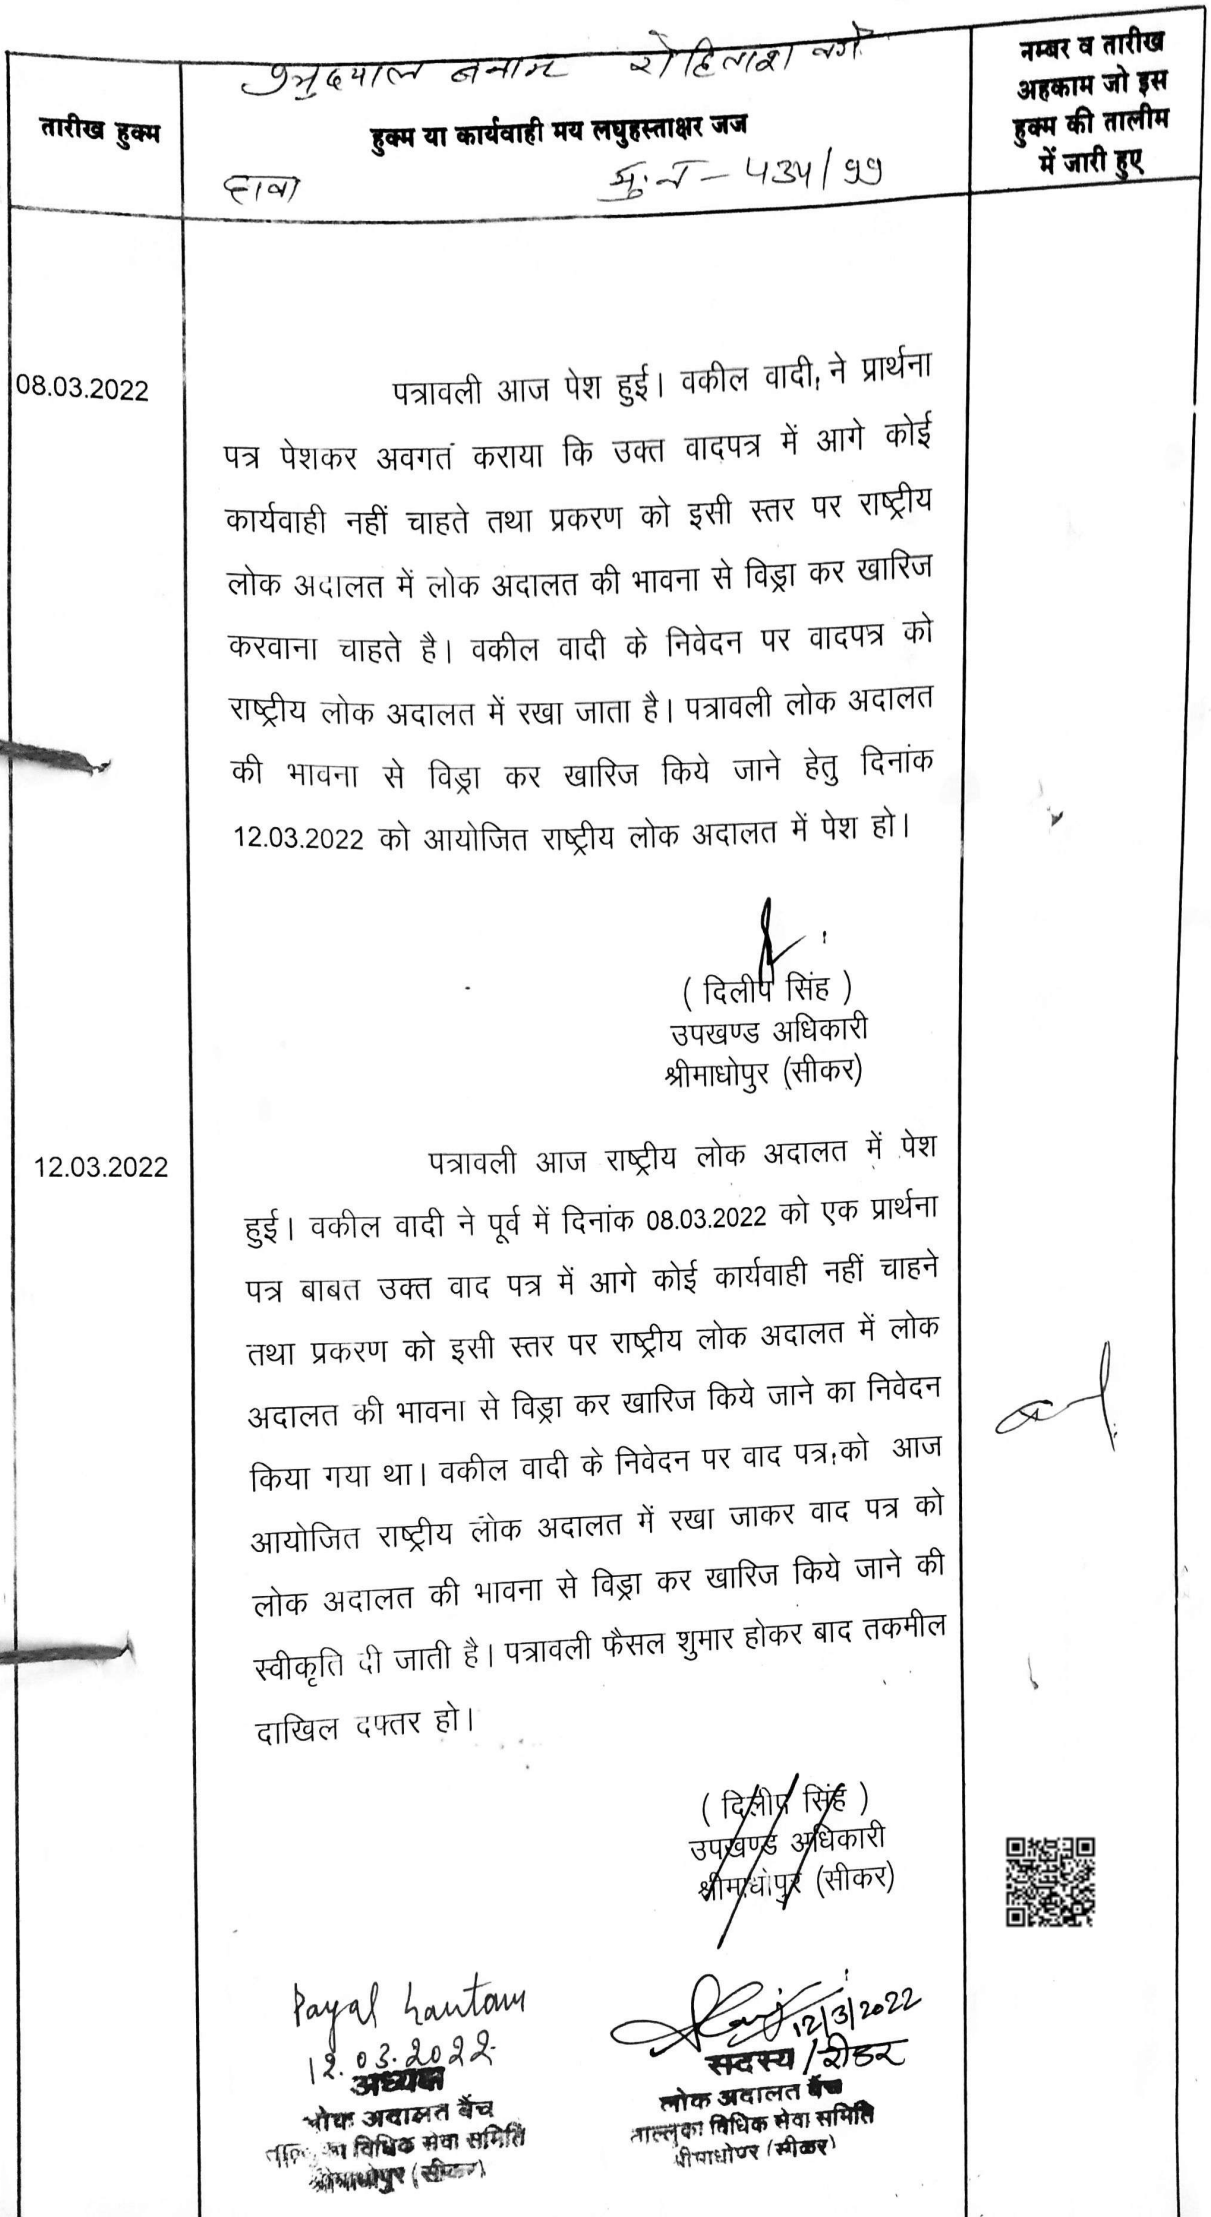 प्रभुदयाल बनाम रोहिताश वगै
तारीख हुक्म
हुक्म या कार्यवाही मय लघुहस्ताक्षर जज
नम्बर व तारीख
अहकाम जो इस
हुक्म की तालीम
में जारी हुए
दावा
मु.न - 434/99
08.03.2022
पत्रावली आज पेश हुई। वकील वादी, ने प्रार्थना
पत्र पेशकर अवगत कराया कि उक्त वादपत्र में आगे कोई
कार्यवाही नहीं चाहते तथा प्रकरण को इसी स्तर पर राष्ट्रीय
लोक अदालत में लोक अदालत की भावना से विड्रा कर खारिज
करवाना चाहते है। वकील वादी के निवेदन पर वादपत्र को
राष्ट्रीय लोक अदालत में रखा जाता है। पत्रावली लोक अदालत
की भावना से विड्रा कर खारिज किये जाने हेतु दिनांक
12.03.2022 को आयोजित राष्ट्रीय लोक अदालत में पेश हो।
( दिलीप सिंह )
उपखण्ड अधिकारी
श्रीमाधोपुर (सीकर)
12.03.2022
पत्रावली आज राष्ट्रीय लोक अदालत में पेश
हुई। वकील वादी ने पूर्व में दिनांक 08.03.2022 को एक प्रार्थना
पत्र बाबत उक्त वाद पत्र में आगे कोई कार्यवाही नहीं चाहने
तथा प्रकरण को इसी स्तर पर राष्ट्रीय लोक अदालत में लोक
अदालत की भावना से विड्रा कर खारिज किये जाने का निवेदन
किया गया था। वकील वादी के निवेदन पर वाद पत्र को आज
आयोजित राष्ट्रीय लोक अदालत में रखा जाकर वाद पत्र को
लोक अदालत की भावना से विड्रा कर खारिज किये जाने की
स्वीकृति दी जाती है। पत्रावली फैसल शुमार होकर बाद तकमील
दाखिल दफ्तर हो।
( दिलीप सिंह )
उपखण्ड अधिकारी
श्रीमाधोपुर (सीकर)
Payal Gautam
12.03.2022
अध्यक्ष
लोक अदालत बैंच
ताल्लुका विधिक सेवा समिति
श्रीमाधोपुर (सीकर)
12/3/2022
सदस्य / रीडर
लोक अदालत बैंच
ताल्लुका विधिक सेवा समिति
श्रीमाधोपुर (सीकर)